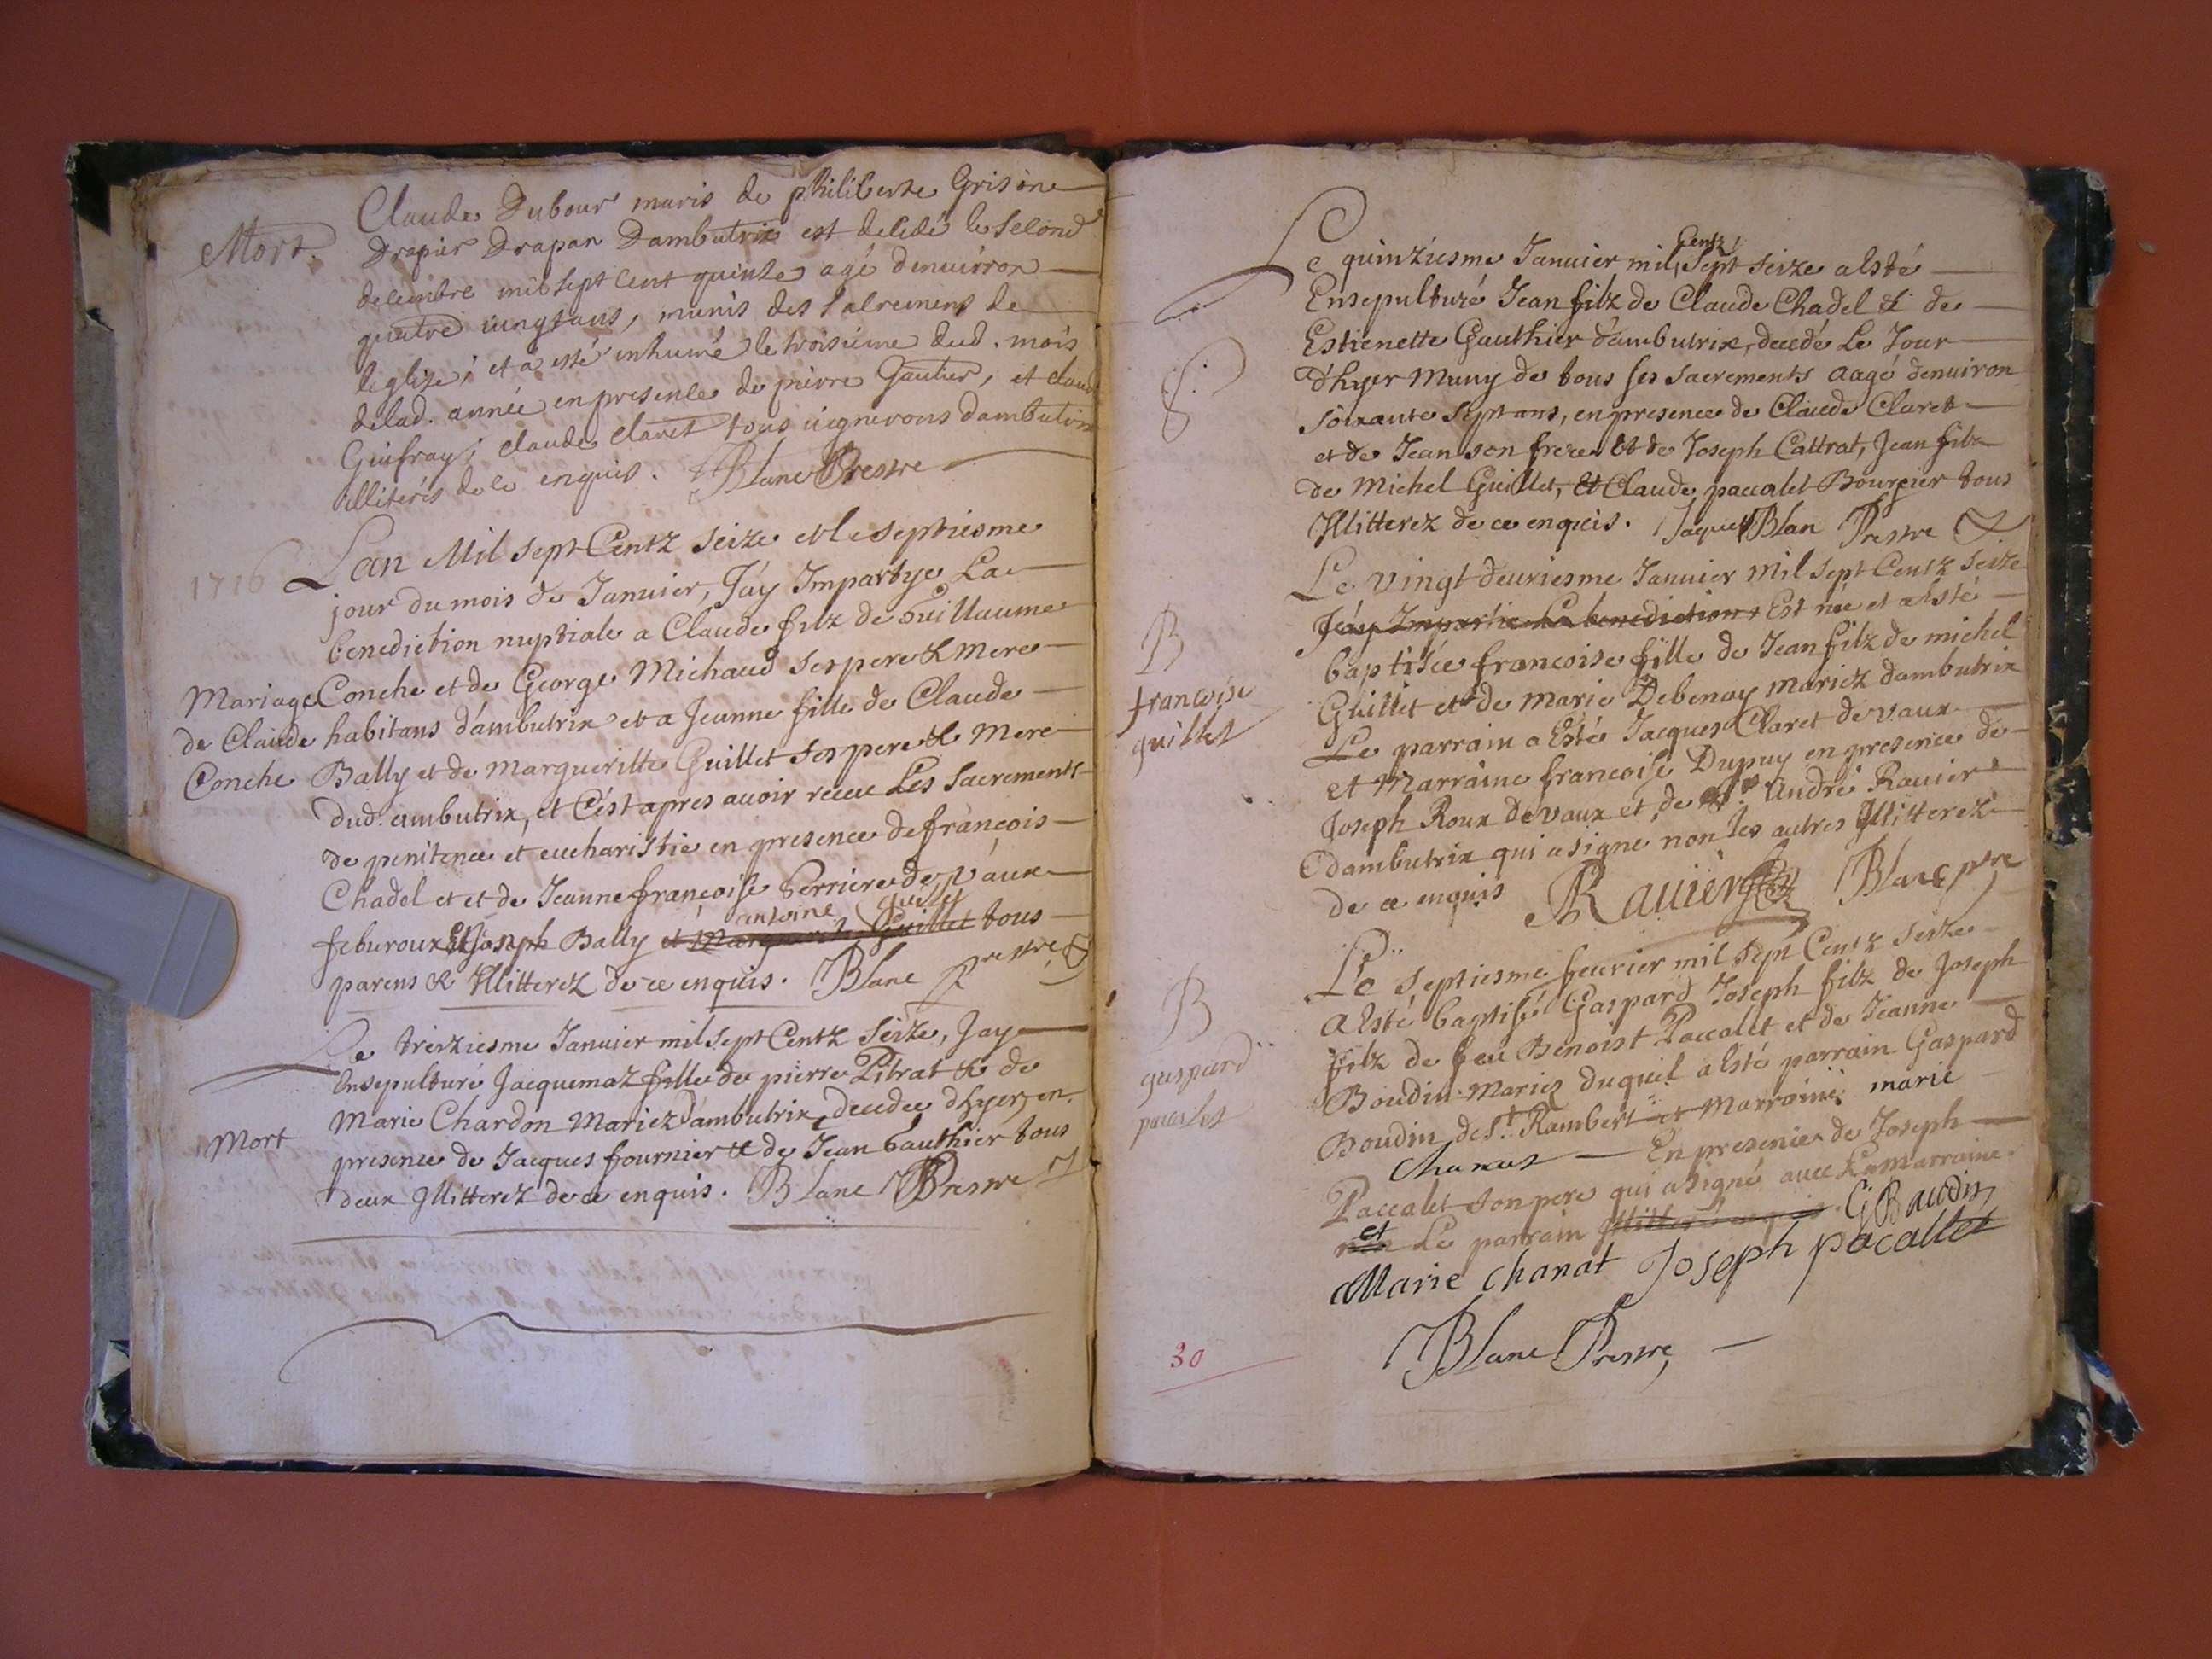 Mort.
Claude Dubour maris de philiberte Grisone
Drapier Drapan Dambutrix est decedé le second
decembre mil sept cent quinze agé denuirron
quatre vingtans, munis des sacremens de
leglise; et a esté inhumé le troisieme dud. mois
delad. année en presence de pierre Gautier, et claude
Guifray; claude claret tous uignerons dambutrix
illiterés de ce enquis. Blanc Prestre
1716
Lan Mil sept Centz seize et le septiesme
jour du mois de Januier, J'ay Impartye La
benediction nuptiale a Claude filz de Guillaume
Mariage Conche et de George Michaud ses pere & mere
de Claude habitans d'ambutrix et a Jeanne fille de Claude
Conche Bally et de Margueritte Guillet ses pere & mere
dud. ambutrix, et C'est apres auoir receu Les sacrements
de penitence et eucharistie en presence de françois
Chadel et et de Jeanne françoise Perriere de vaux
antoine
feburoux Et Joseph Bally et Marguerite Guillet tous
parens & Illitterez de ce enquis. Blanc Prestre
Le treiziesme Januier mil sept Centz seize, Jay
Ensepulturé Jacquemaz fille de pierre Pitrat & de
Marie Chardon Mariez d'ambutrix, decedee dhyer, en
Mort
presence de Jacques fournier & de Jean Gauthier tous
deux Illitterez de ce enquis. Blanc Prestre
Centz
Le quinziesme Januier mil Sept seize a Esté
Ensepulturé Jean filz de Claude Chadel & de
Estienette Gauthier d'ambutrix, decedé Le Jour
d'hyer Muny de tous ses sacrements aagé denuiron
soixante sept ans, en presence de Claude Claret
et de Jean son frere Et de Joseph Cattrat, Jean filz
de Michel Guillet, Et Claude paccalet Bourgier tous
Illitterez de ce enquis. Jacques Blan Prestre
Le vingt deuxiesme Januier mil sept Centz seize
J'ay Impartie La benediction Est née et a Esté
B
baptisée francoise fille de Jean filz de michel
francoise
Guillet et de marie Debenay mariez dambutrix
guillet
Le parrain a Esté Jacques Claret de vaux
et Marraine francoise Dupuy en presence de
Joseph Roux de vaux et de Sr. André Rauier
dambutrix qui a signe non les autres Illitterez
de ce enquis Rauier Blanc ptre
Le septiesme feurier mil sept Centz seize
B
a Esté baptisé Gaspard Joseph filz de Joseph
gaspard
filz de feu Benoist Paccalet et de Jeanne
Boudin Mariez duquel a Esté parrain Gaspard
pacalet
Boudin de St. Rambert et Marraine marie
Chanat — En presence de Joseph
Paccalet son pere qui a signé auec La marraine
et
non Le parrain Illitteré enquis. G Baudin
Marie chanat Joseph pacallet
Blanc Prestre
30